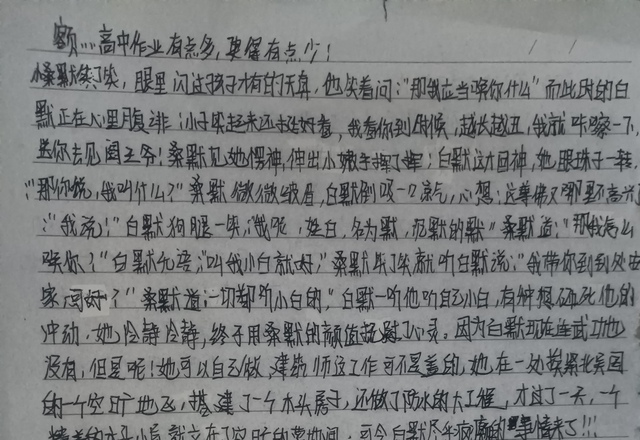 额…高中作业有点多,更得有点少!
桑默笑了笑,眼里闪过孩子才有的天真,他笑着问:“那我应当唤你什么”而此时的白
默正在心里腹诽:小子笑起来还挺好看,我看你到时候,越长越丑,我就咔嚓一下,
送你去见阎王爷!桑默见她愣神,伸出小嫩手挥了挥;白默这才回神,她眼珠子一转,
:“那你说,我叫什么?”桑默微微皱眉,白默倒吸一口凉气,心想:这尊佛又哪里不高兴了
:“我说!”白默狗腿一笑:“我呢,姓白,名为默,沉默的默”桑默道:“那我怎么
唤你?”白默无语:“叫我小白就好,”桑默笑了笑就听白默说:“我带你到到处安
家可好?”桑默道:一切都听小白的,”白默一听他叫自己小白,有种想碰死他的
冲动,她冷静冷静,终于用桑默的颜值起到心灵。因为白默现在连武功也
没有,但是呢!她可以自己做,建筑师这工作可不是盖的,她在一处挨紧北美国
的一个空旷地区,搭建了一个木头房子,还做了防水的大工程,才过了一天,一个
精美的木头小屋就立在了空旷的草地间,可令白默反乎疯癫的事情来了!!!